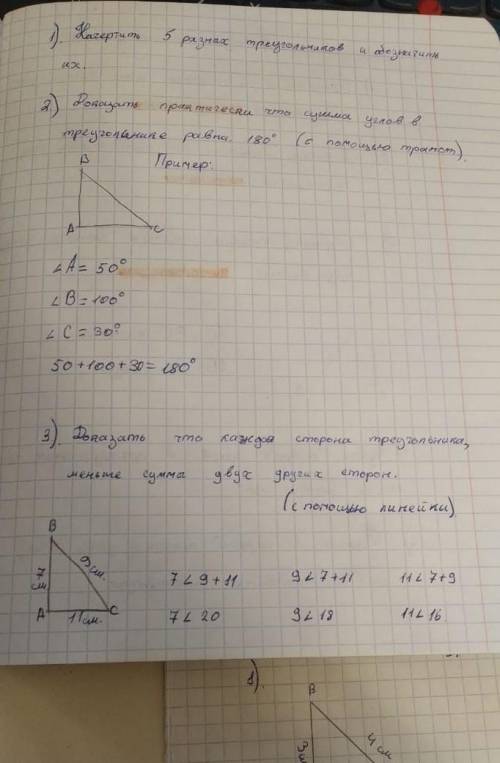 1). Начертить 5 разнах треугольников и обозначить
их.
2.) Доказать практически что сумма углов в
треугольнике равна. 180° (с помощью трансп).
Пример:
B
A
C
∠A = 50°
∠B = 100°
∠C = 30°
50+100+30 = 180°
3). Доказать что каждая сторона треугольника,
меньше сумма двух других сторон.
(с помощью линейки)
B
7 см
9 см.
A
11 см.
C
7 < 9 + 11 9 < 7 + 11 11 < 7 + 9
7 < 20 9 < 18 11 < 16
1).
B
3 см
4 см